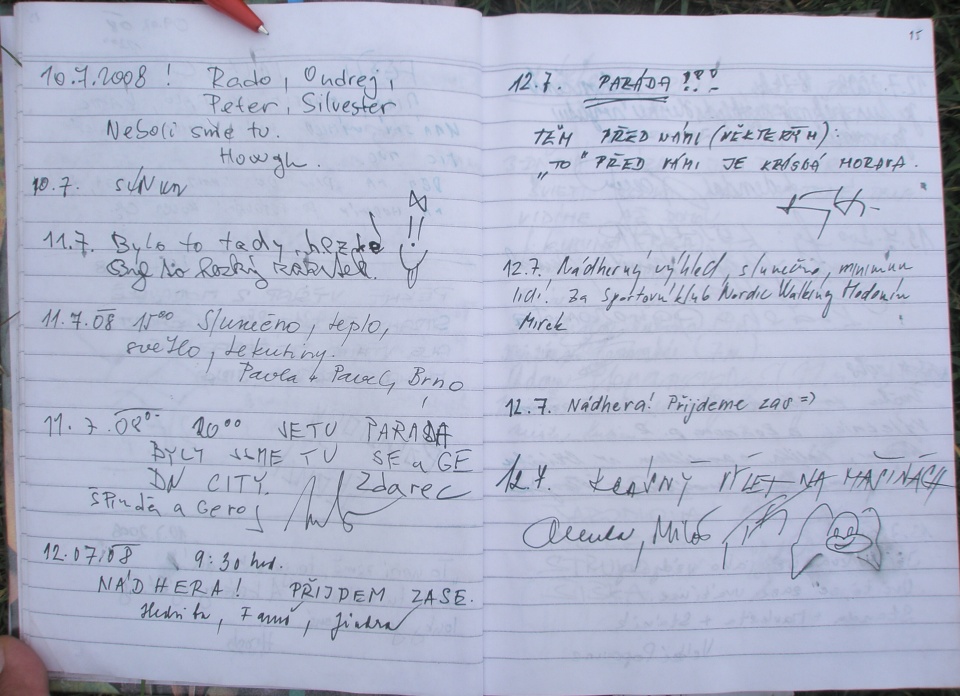 10.7.2008 ! Rado, Ondrej,
Peter, Silvester
Neboli sme tu.
Howgh.
10.7.
11.7. Bylo to tady hezké!!!
11.7.08 15⁰⁰ Slunečno, teplo,
světlo, tekutiny.
Pavla + Pavel, Brno
11.7.08 10⁰⁰ JE TU PARÁDA
BYLY JSME TU SE a GE
DN CITY. Zdarec
Špinďa a Geroj
12.07.08 9:30 hod.
NÁDHERA! PŘIJDEM ZASE.
Jindra
15
12.7. PARÁDA!!!
TĚM PŘED NÁMI (NĚKTERÝM):
„TO“ PŘED VÁMI JE KRÁSNÁ MORAVA.
12.7. Nádherný výhled, slunečno, minimum
lidí! Za Sportovní klub Nordic Walking Hodonín
Mirek
12.7. Nádhera! Přijdeme zas =)
12.7. KRÁSNÝ VÝLET NA MAŠINÁCH
Alenka, Miloš